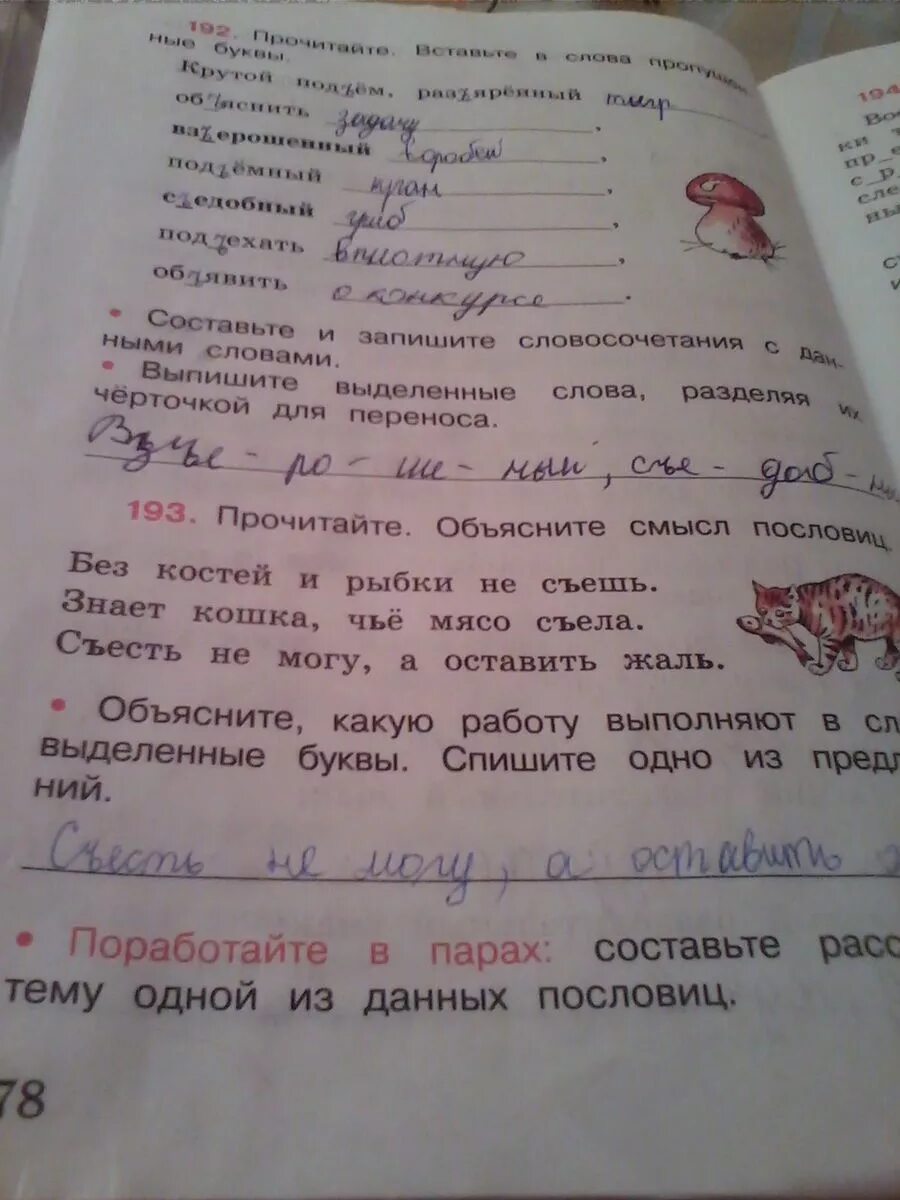 192. Прочитайте. Вставьте в слова пропущен-
ные буквы.
Крутой подъём, разъярённый тигр
объяснить задачу,
взъерошенный воробей,
подъёмный кран,
съедобный гриб,
подъехать вплотную,
объявить о конкурсе.
• Составьте и запишите словосочетания с дан-
ными словами.
• Выпишите выделенные слова, разделяя их
чёрточкой для переноса.
Взъе - ро - ше - ный, съе - доб -
193. Прочитайте. Объясните смысл пословиц.
Без костей и рыбки не съешь.
Знает кошка, чьё мясо съела.
Съесть не могу, а оставить жаль.
• Объясните, какую работу выполняют в сл
выделенные буквы. Спишите одно из пред
ний.
Съесть не могу, а оставить
• Поработайте в парах: составьте расс
тему одной из данных пословиц.
78
194
Во
ки
пр_е
с_р
сле
ны
с
и